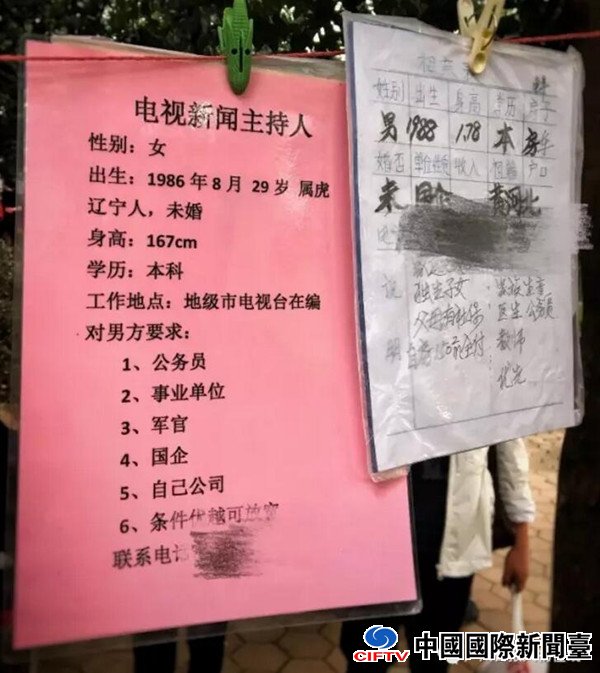 电视新闻主持人
性别：女
出生：1986年8月 29岁 属虎
辽宁人，未婚
身高：167cm
学历：本科
工作地点：地级市电视台在编
对男方要求：
1、公务员
2、事业单位
3、军官
4、国企
5、自己公司
6、条件优越可放宽
联系电
相亲
姓别 出生 身高 学历 房子
男 1988 1.78 本 房车
婚否 单位姓质 收入 祖籍 户口
未
黄河北
说
明
独生子女
父母有社保
医生 公务员
教师
优先
CIFTV 中國國際新聞臺